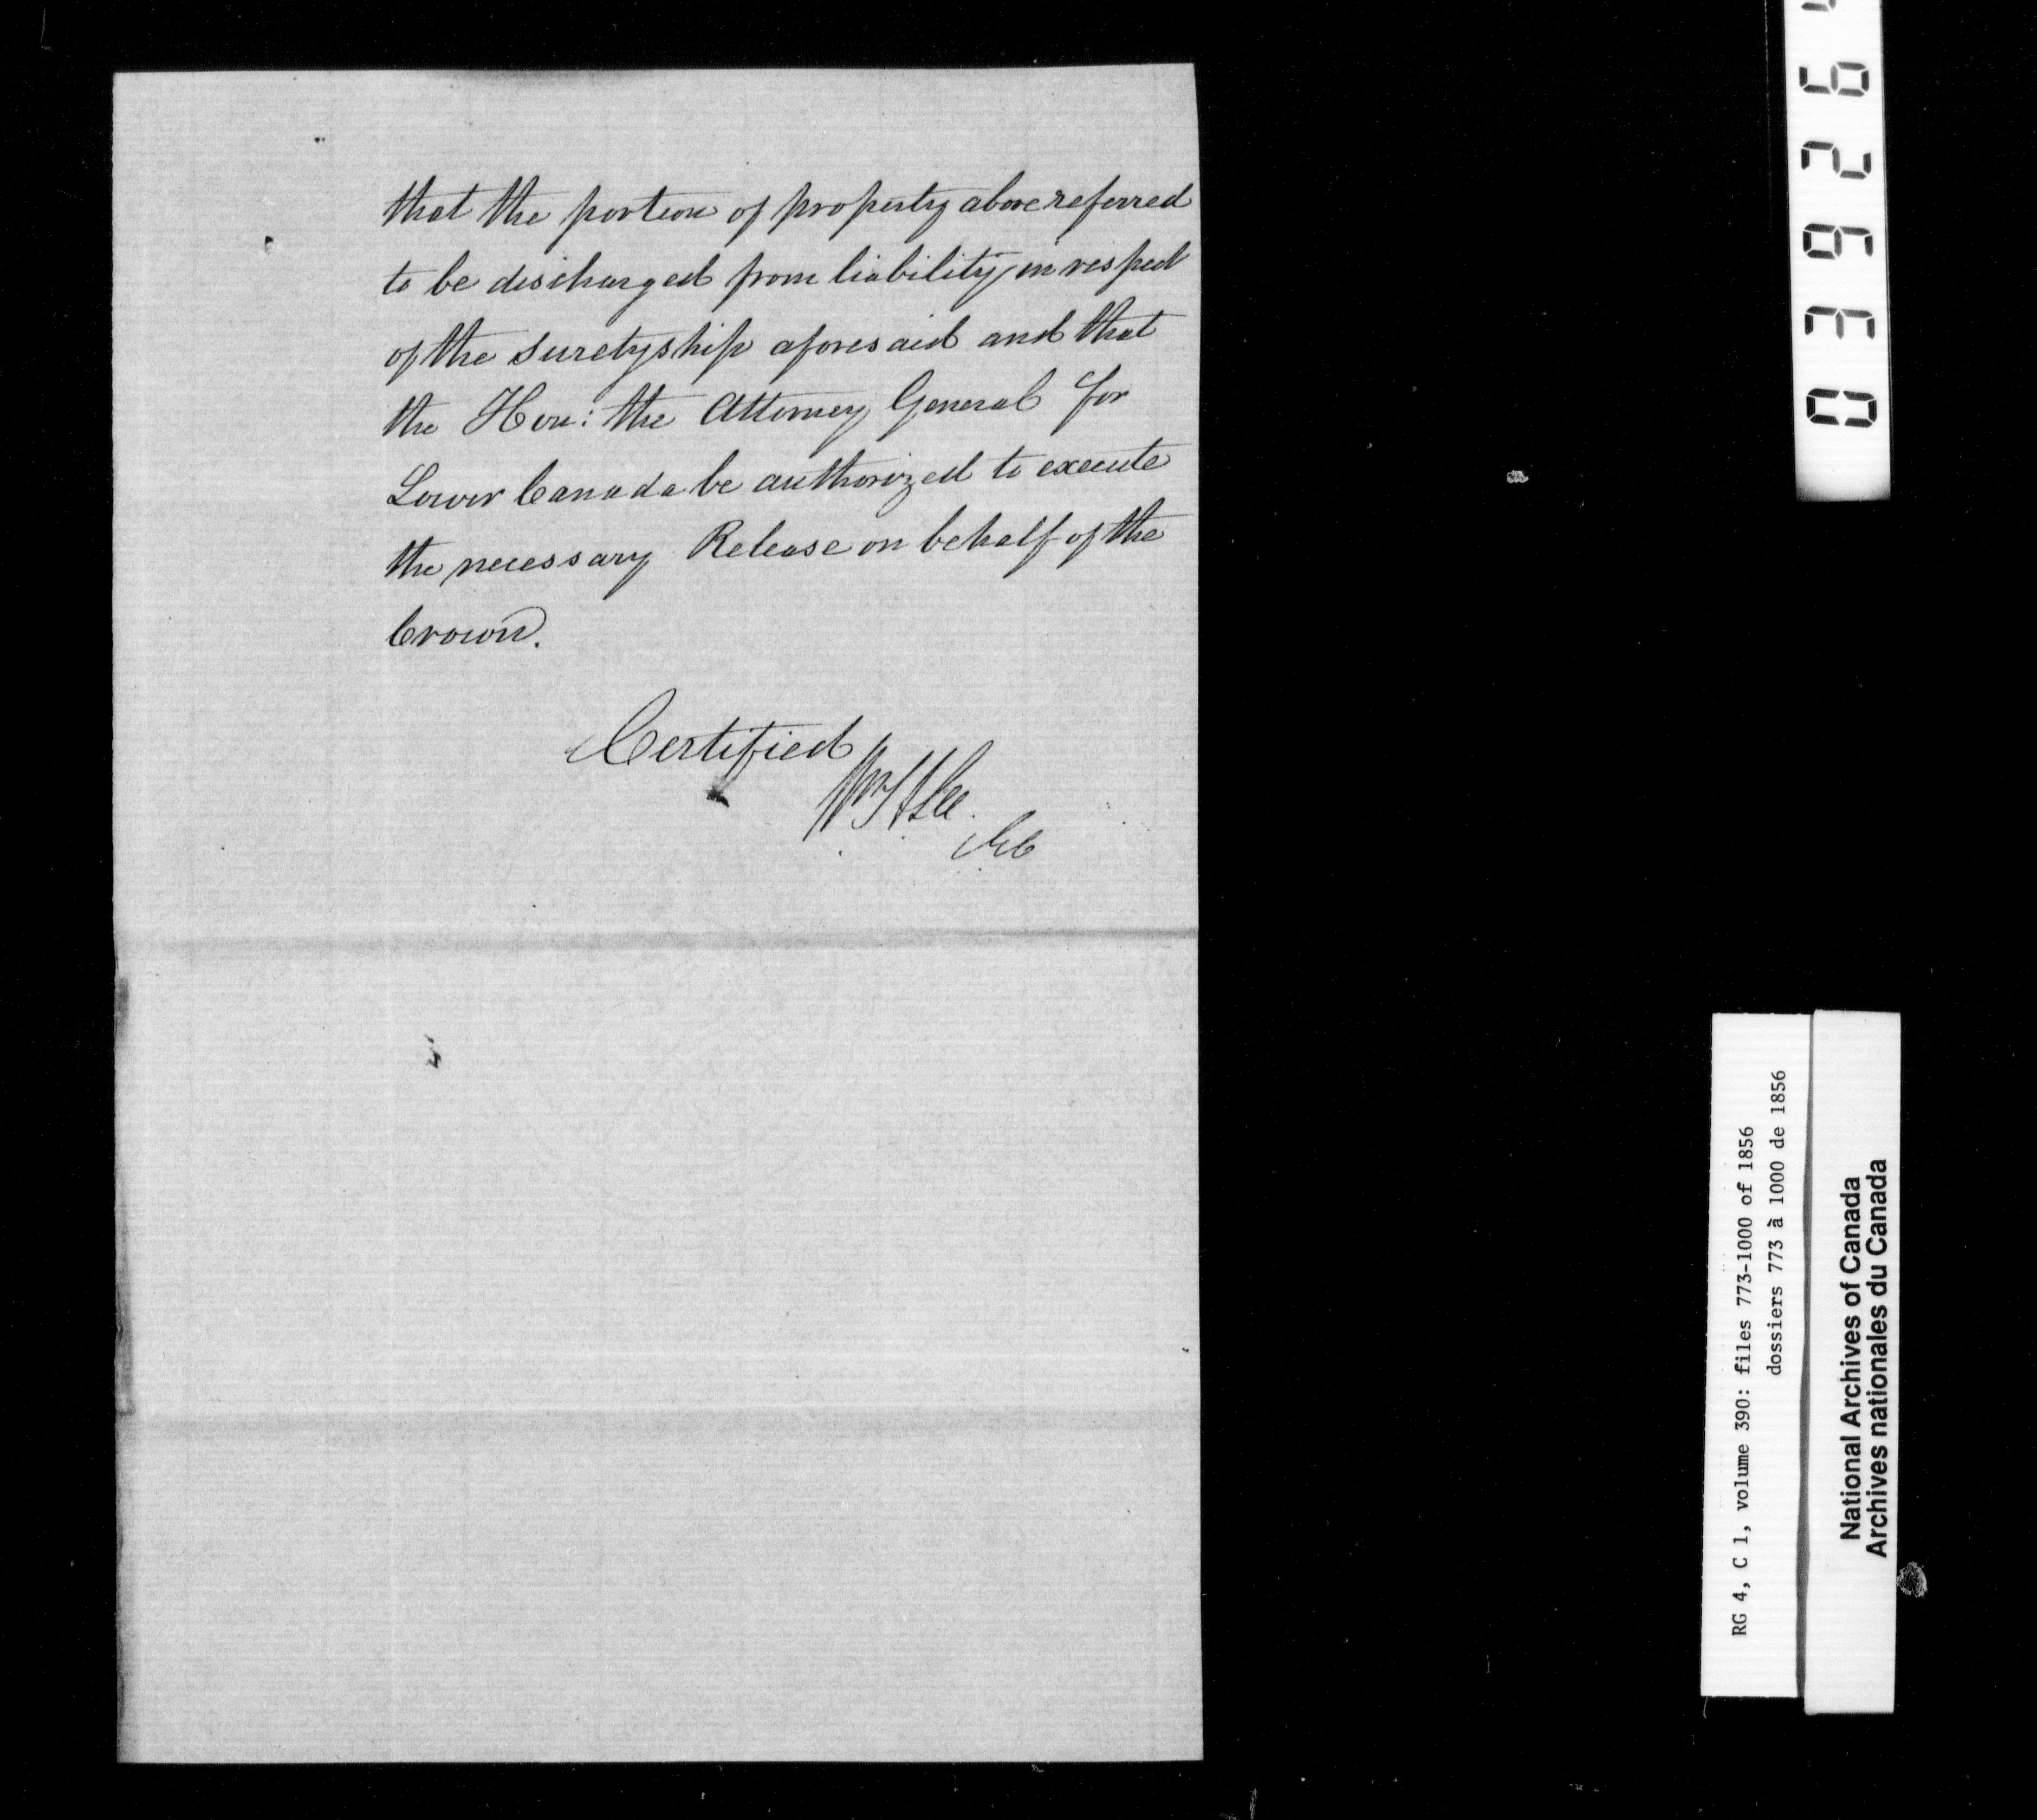 that the portion of property above referred
to be discharged from liability in respect
of the suretyship aforesaid and that
the Hon: the Attorney General for
Lower Canada be authorized to execute
the necessary Release on behalf of the
Crown.
Certified
Wm H Lee
RG 4, C 1, volume 390: files 773-1000 of 1856
dossiers 773 à 1000 de 1856
National Archives of Canada
Archives nationales du Canada